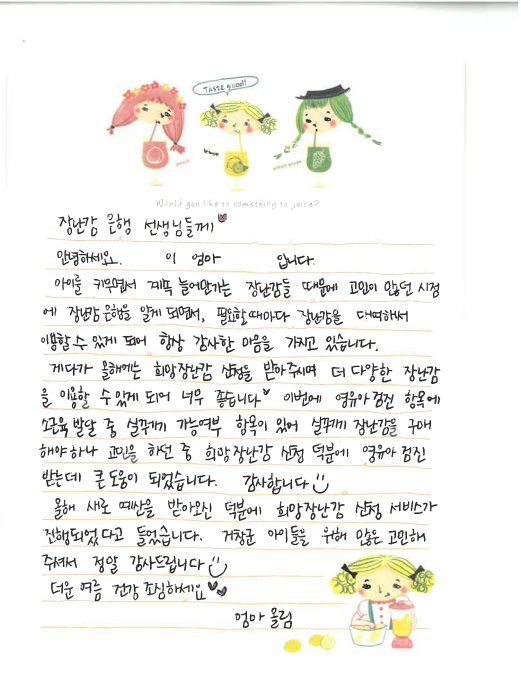 TASTE GOOD!!
peach
lemon
green grape
Would you like to something to juice?
장난감 은행 선생님들께!
안녕하세요. 이 엄마 입니다.
아이를 키우면서 계속 늘어만가는 장난감들 때문에 고민이 많던 시점
에 장난감 은행을 알게 되면서, 필요할때마다 장난감을 대여해서
이용할 수 있게 되어 항상 감사한 마음을 가지고 있습니다.
게다가 올해에는 희망장난감 신청을 받아주시며 더 다양한 장난감
을 이용할 수 있게 되어 너무 좋습니다 이번에 영유아검진 항목에
소근육 발달 중 실꿰기 가능여부 항목이 있어 실꿰기 장난감을 구매
해야하나 고민을 하던 중 희망장난감 신청 덕분에 영유아 검진
받는데 큰 도움이 되었습니다. 감사합니다
올해 새로 예산을 받아오신 덕분에 희망장난감 신청 서비스가
진행되었다고 들었습니다. 거창군 아이들을 위해 많은 고민해
주셔서 정말 감사드립니다
더운 여름 건강 조심하세요
엄마 올림